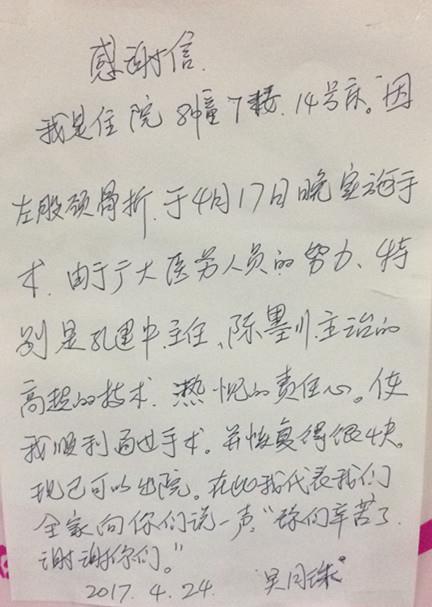 感谢信.
我是住院8幢7楼.14号床。因
左股颈骨折.于4月17日晚实施手
术.由于广大医劳人员的努力、特
别是孔建中.主任、陈墨川.主治的
高超的技术.热忱的责任心。使
我顺利通过手术。并恢复得很快。
现已可以出院。在此我代表我们
全家向你们说一声:“你们辛苦了.
谢谢你们。”
2017.4.24. 吴同